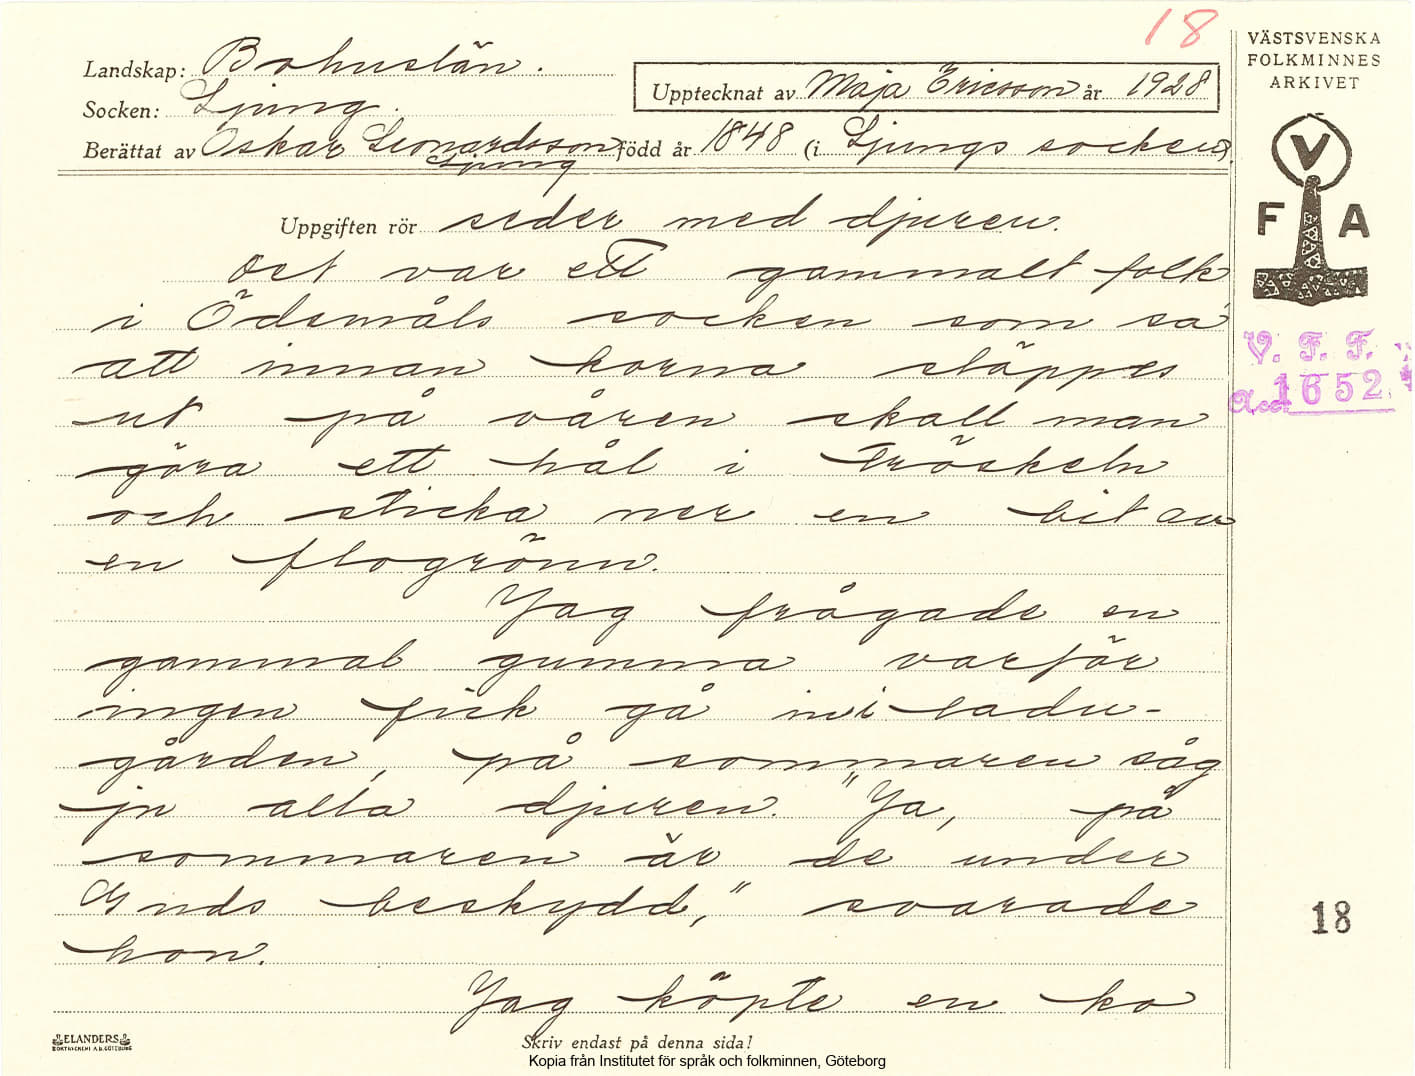 18
VÄSTSVENSKA
FOLKMINNES
ARKIVET
Landskap: Bohuslän.
Socken: Ljung.
Upptecknat av Maja Ericsson år 1928
Berättat av Oskar Leonardsson född år 1848 (i Ljungs socken).
Ljung
V
F A
Uppgiften rör seder med djuren.
Det var ett gammalt folk
i Ödsmåls socken som sa
att innan korna släppes
ut på våren skall man
göra ett hål i tröskeln
och sticka ner en bit av
en flogrönn.
V. F. F.
Acc. 1652
Jag frågade en
gammal gumma varför
ingen fick gå in i ladu-
gården, på sommaren såg
ju alla djuren. "Ja, på
sommaren är de under
Guds beskydd," svarade
hon.
18
Jag köpte en ko
ELANDERS
BOKTRYCKERI A.B. GÖTEBORG
Skriv endast på denna sida!
Kopia från Institutet för språk och folkminnen, Göteborg